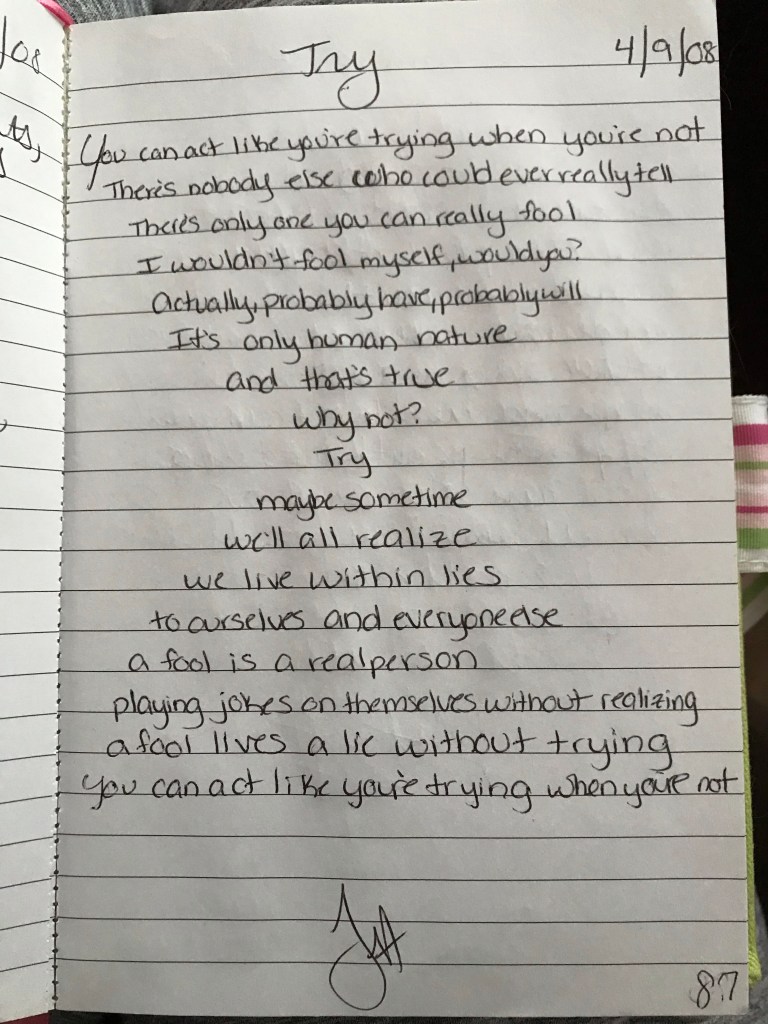 /08
Try
4/9/08
You can act like you're trying when you're not
There's nobody else who could ever really tell
There's only one you can really fool
I wouldn't fool myself, would you?
Actually, probably have, probably will
It's only human nature
and that's true
why not?
Try
maybe sometime
we'll all realize
we live within lies
to ourselves and everyone else
a fool is a real person
playing jokes on themselves without realizing
a fool lives a lie without trying
You can act like you're trying when you're not
87